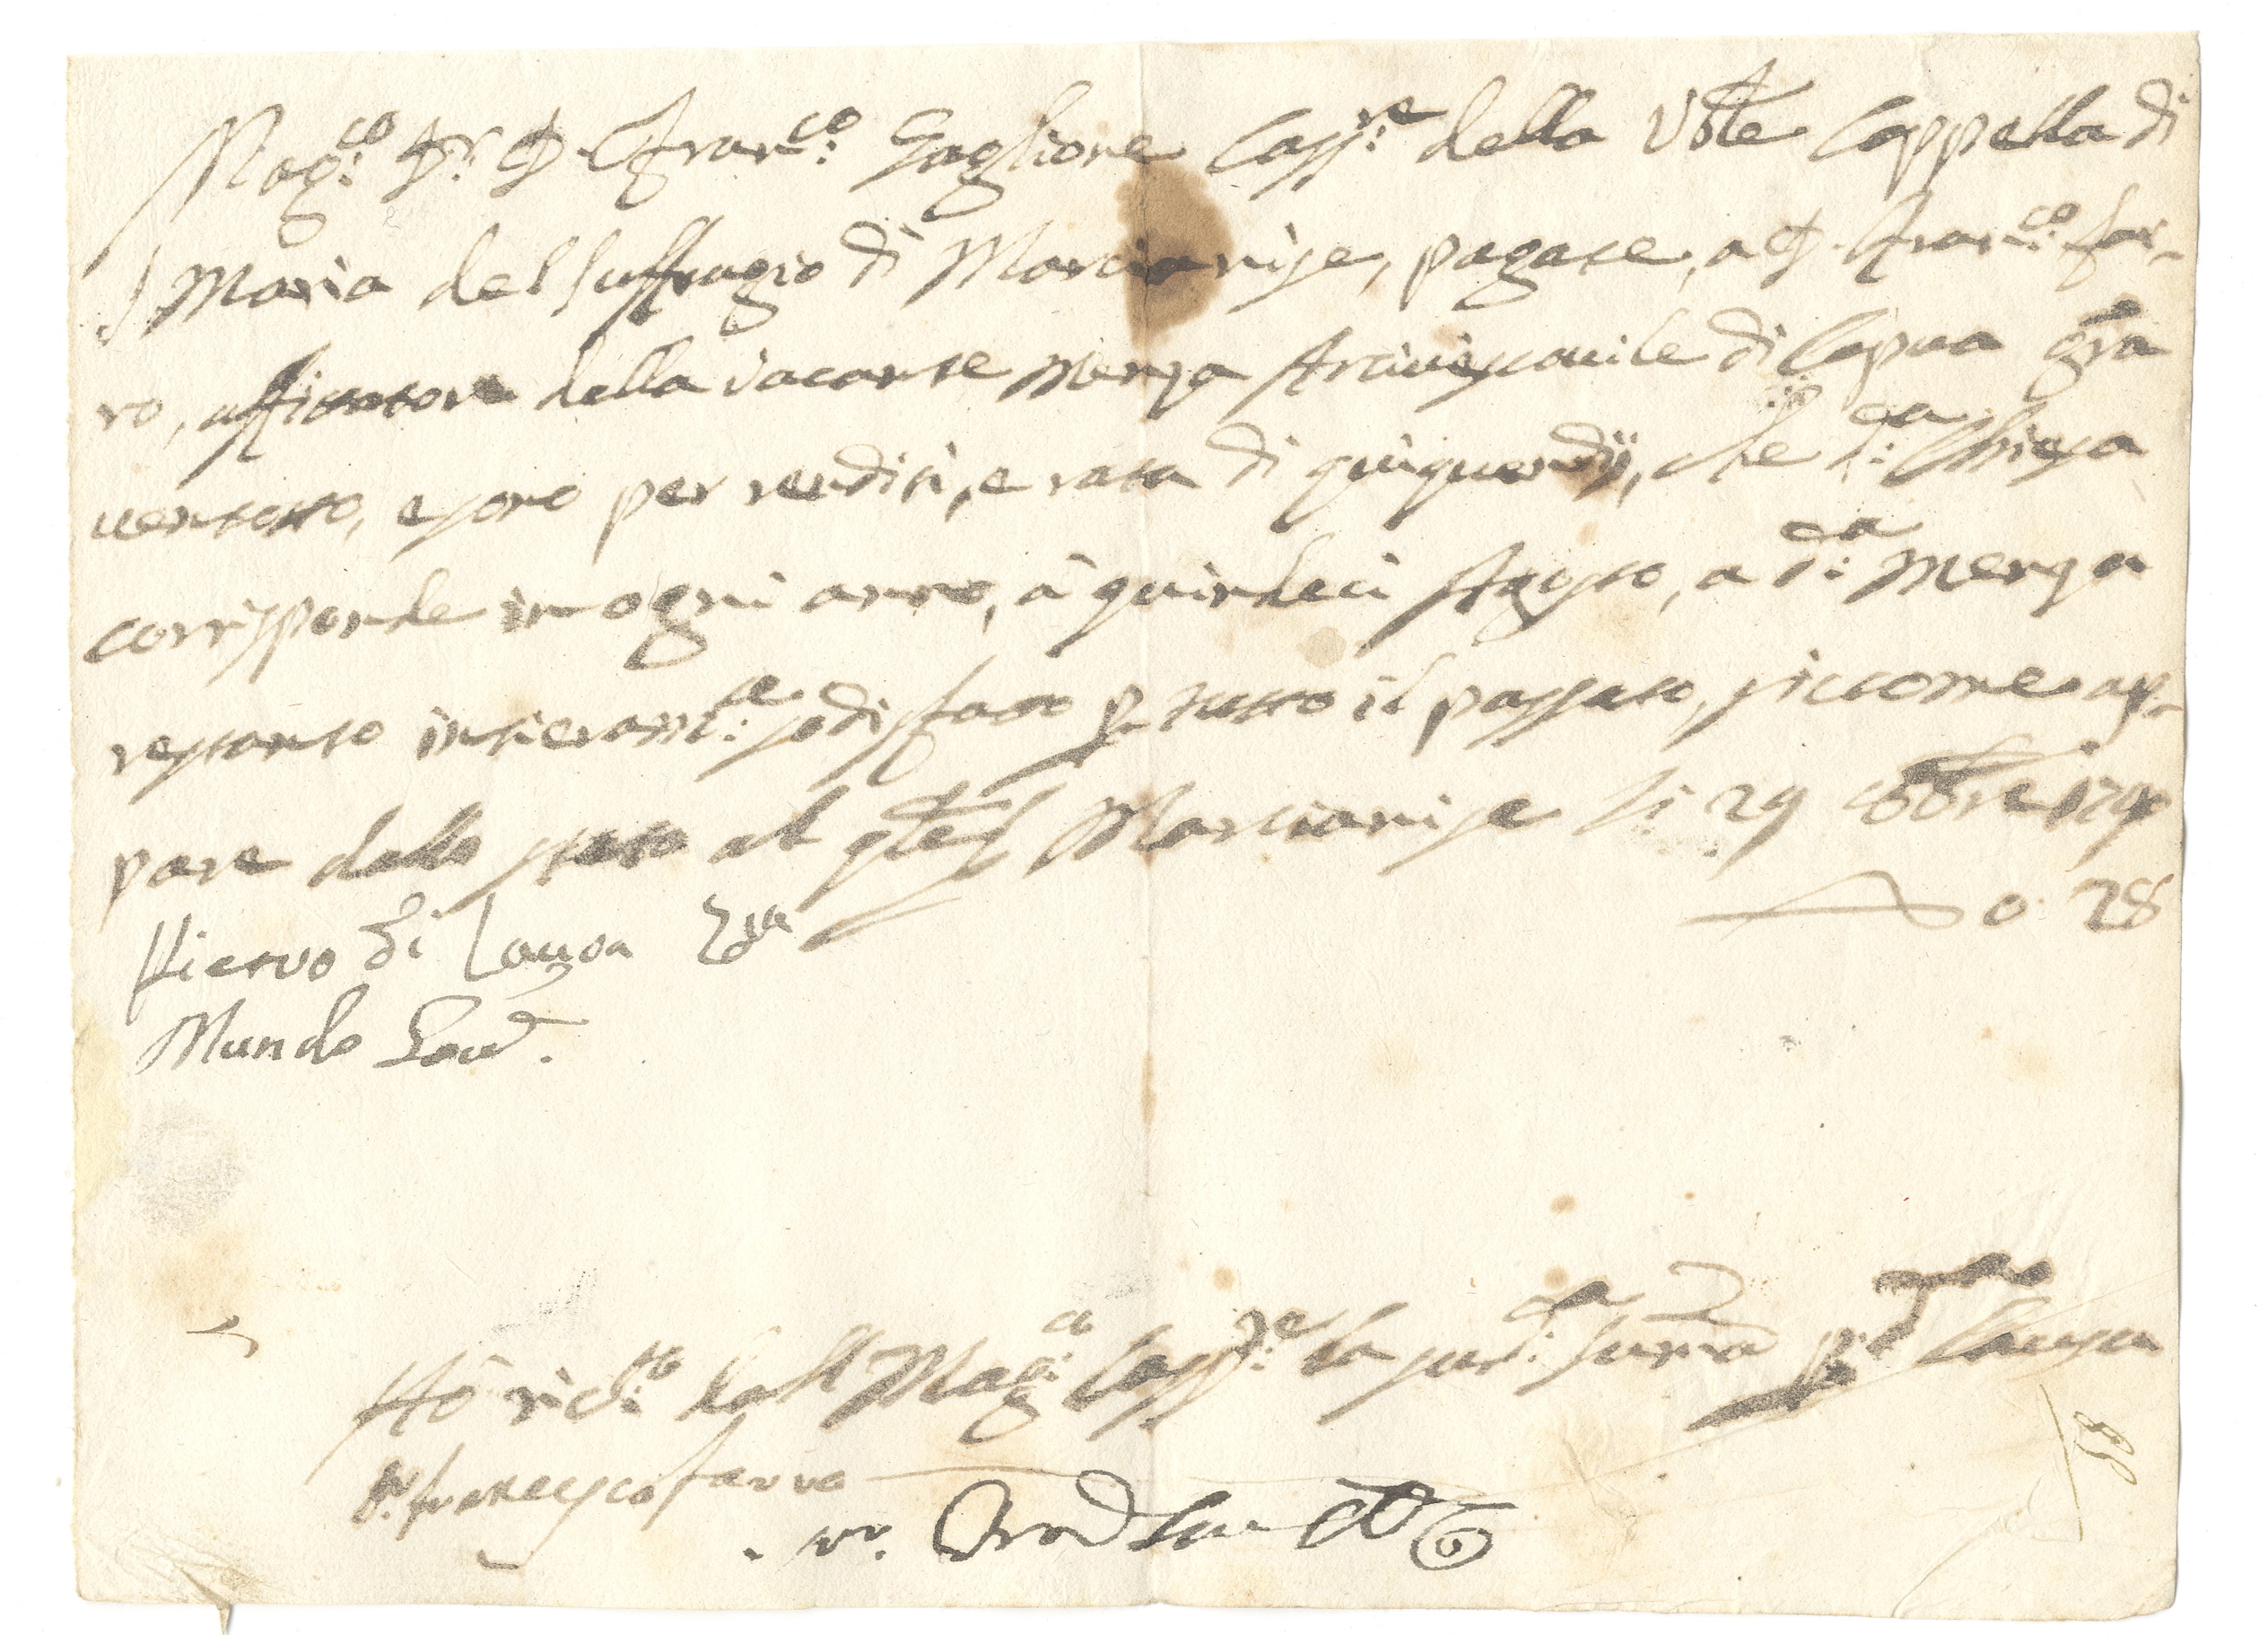 Mag:co Dr. D. Fran:co Gaglione Cass:re della Vñle Cappella di
S. Maria del Suffragio di Marcianise, pagate, a D. Fran:co Far-
ro, affittatore della vacante Menza Arcivescovile di Capua grã
ventotto, e sono per renditi, e rata di quinquendij, che d:ta Chiesa
corrisponde in ogni anno, a quindeci Agosto, a d:ta Menza
restanto intieram:te sodisfatto p tutto il passato, siccome ap-
pare dallo stesso Marcianise li 29 8bre
0 28
Pietro di Lauza
Mundo
Hò ric:to dall Mag:co Cass:re la sud:ta summa p Causa
D. Francesco Farro
58